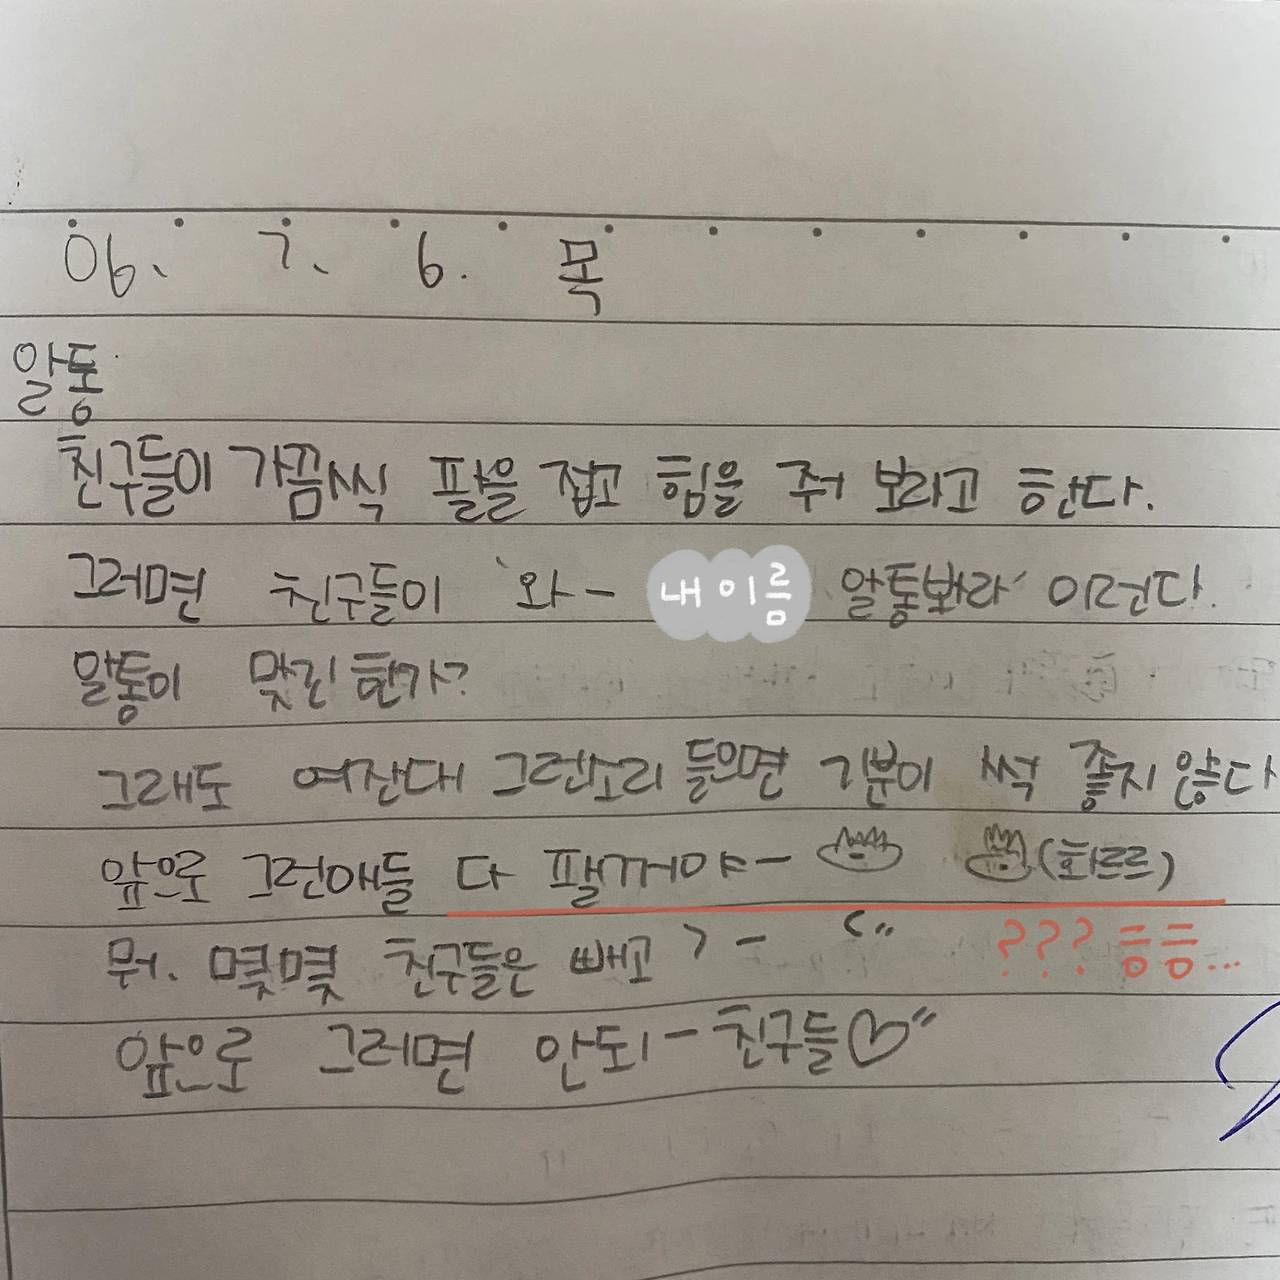 06. 7. 6. 목
알통
친구들이 가끔씩 팔을 접고 힘을 줘 보라고 한다.
그러면 친구들이 '와- 내 이름 알통봐라' 이런다.
알통이 맞긴 한가?
그래도 여잔대 그런소리 들으면 기분이 썩 좋지 않다
앞으로 그런애들 다 팰꺼야- (화르르)
뭐. 몇몇 친구들은 빼고 ㄱ-
??? 듬듬...
앞으로 그러면 안되- 친구들♡"